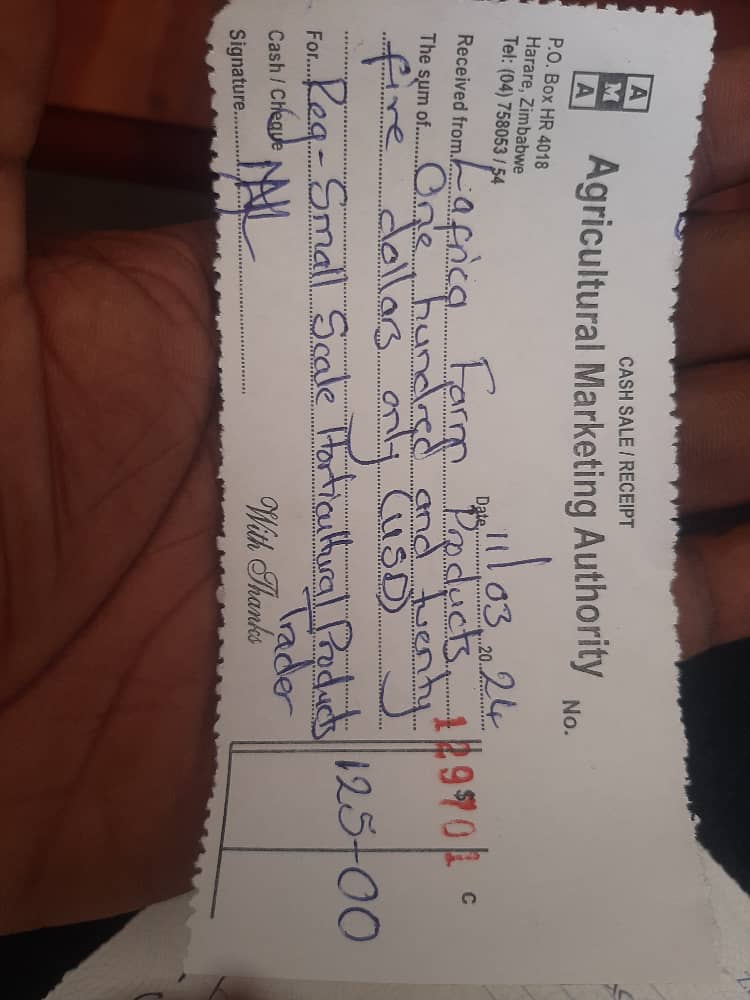 CASH SALE / RECEIPT
A
M
A
Agricultural Marketing Authority
No.
P.O. Box HR 4018
Harare, Zimbabwe
Tel: (04) 758053 / 54
129701
Date 11/03 20 24
Received from Lafrica Farm Products
The sum of One hundred and twenty
five dollars only (USD)
$ C
For Reg-Small Scale Horticultural Products 125-00
Trader
Cash / Cheque
With Thanks
Signature